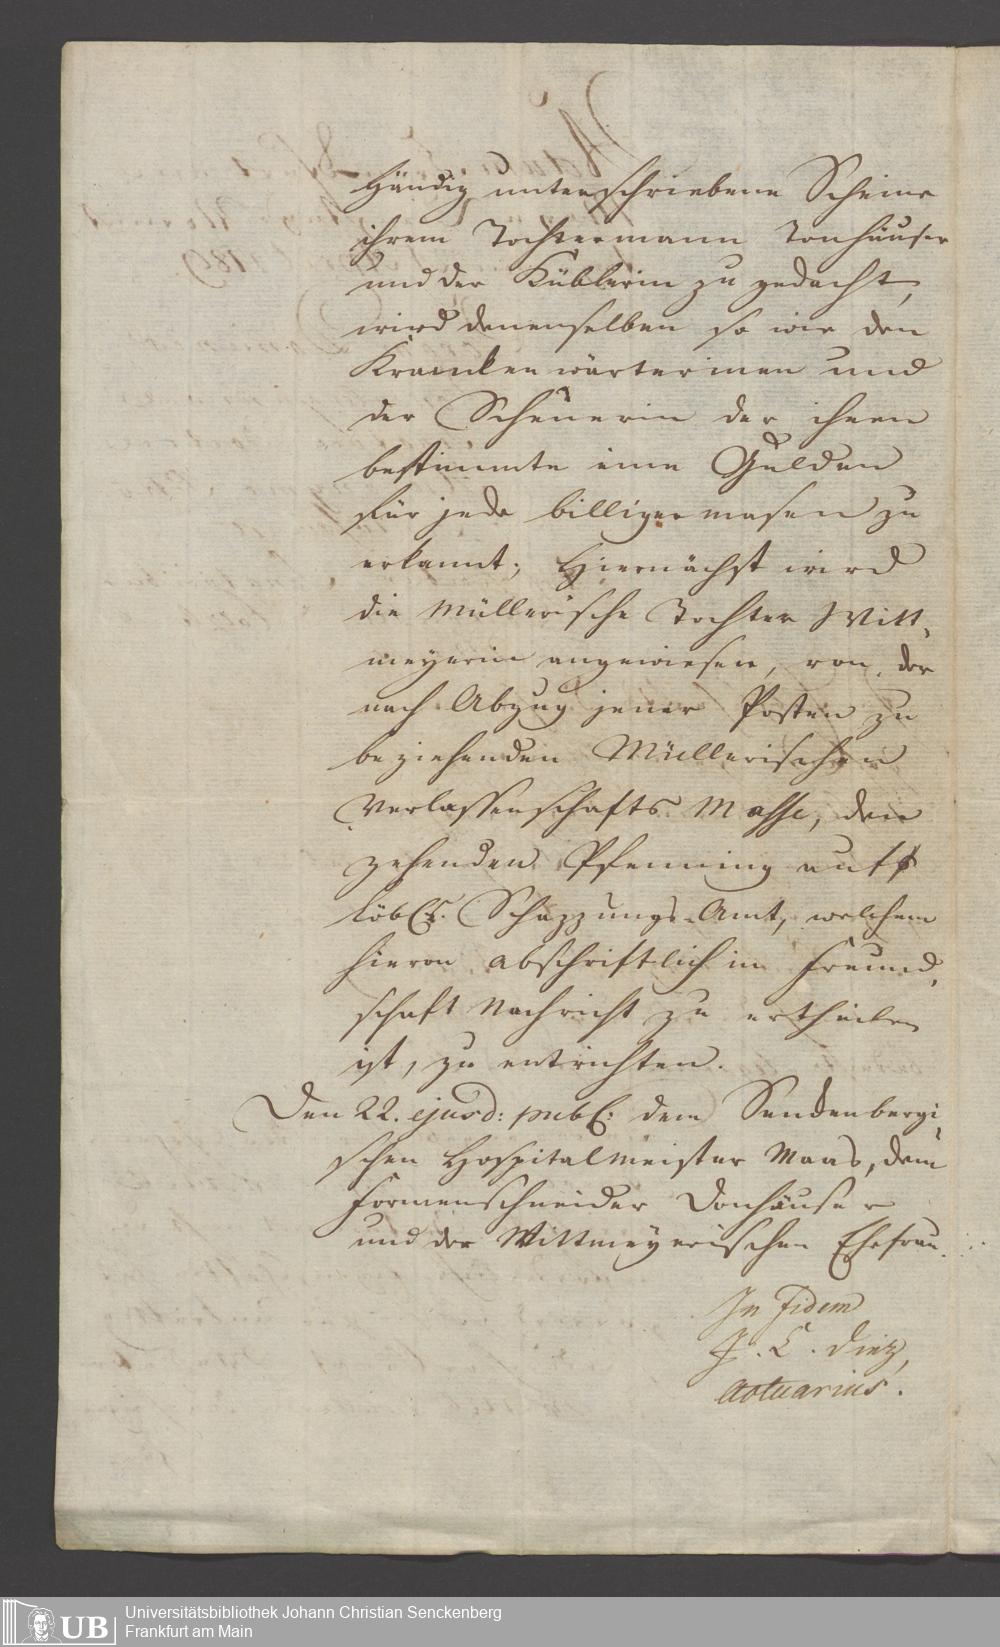 händig unterschriebene Scheine
ihrem Tochtermann Tonhäuser
und der Küblerin zu gedacht,
wird denenselben so wie den
Kranckenwärterinen und
der Scheuerin der ihnen
bestimmte eine Gulden
für jede billigermasen zu
erkannt; Hiernächst wird
die Müllerische Tochter Witt,
meyerin angewiesen, von der
nach Abzug jener Posten zu
beziehenden Müllerischen
Verlassenschafts Masse, den
zehenden Pfenning auf
löbl. Schazzungs-Amt, welchem
hievon abschriftlich in Freund,
schaft Nachricht zu ertheilen
ist, zu entrichten.
Den 22. ejusd: publ: dem Senckenbergi,
schen Hospitalmeister Maas, dem
Formenschneider Donhäuser
und der Wittmeyerischen Ehefrau.
In Fidem
J. C. Diez,
Actuarius.
UB
Universitätsbibliothek Johann Christian Senckenberg
Frankfurt am Main